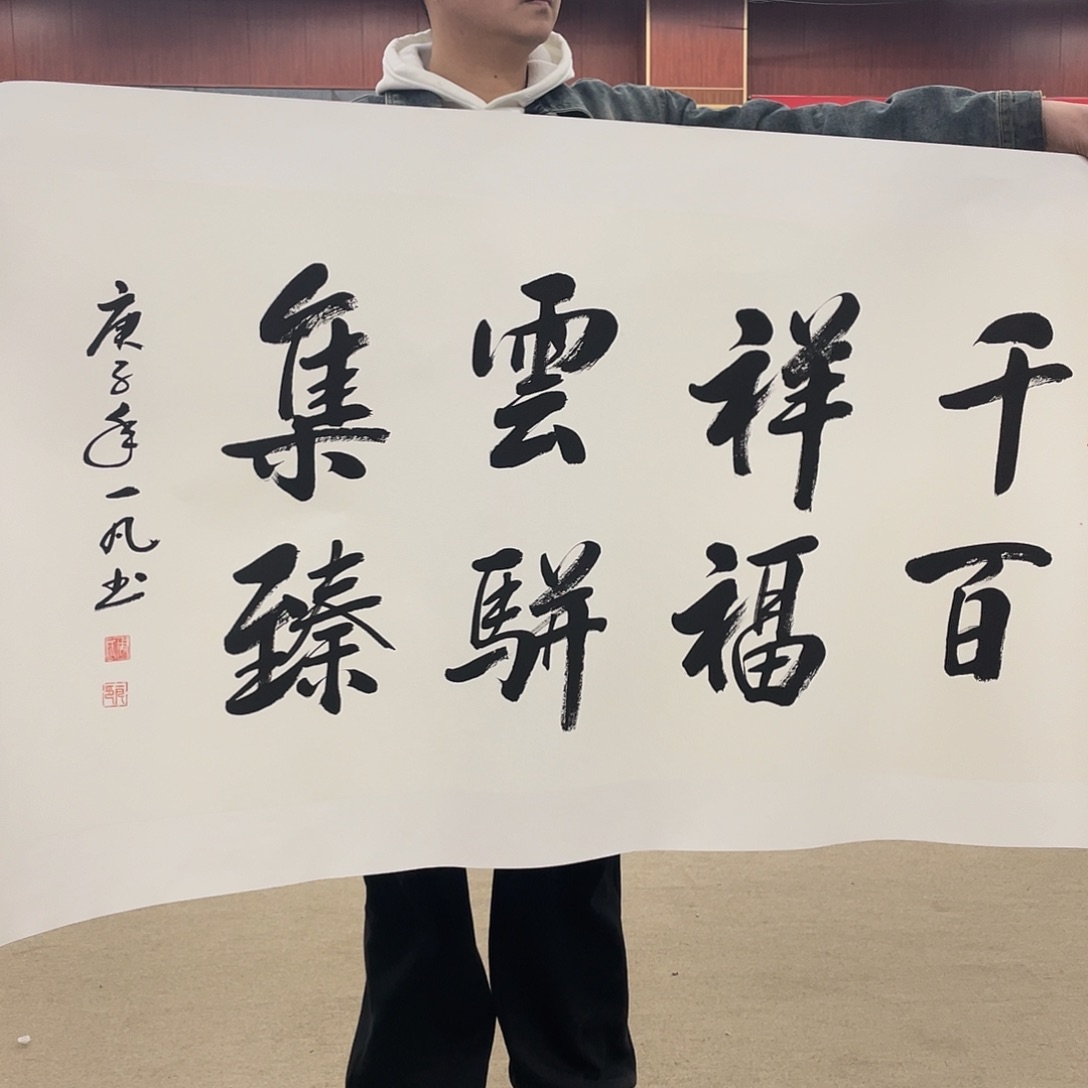 千祥雲集
百福駢臻
庚子年一凡书